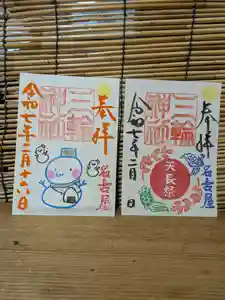 奉拝
三輪神社
令和七年二月十六日
名古屋
奉拝
三輪神社
令和七年二月 日
天長祭
名古屋